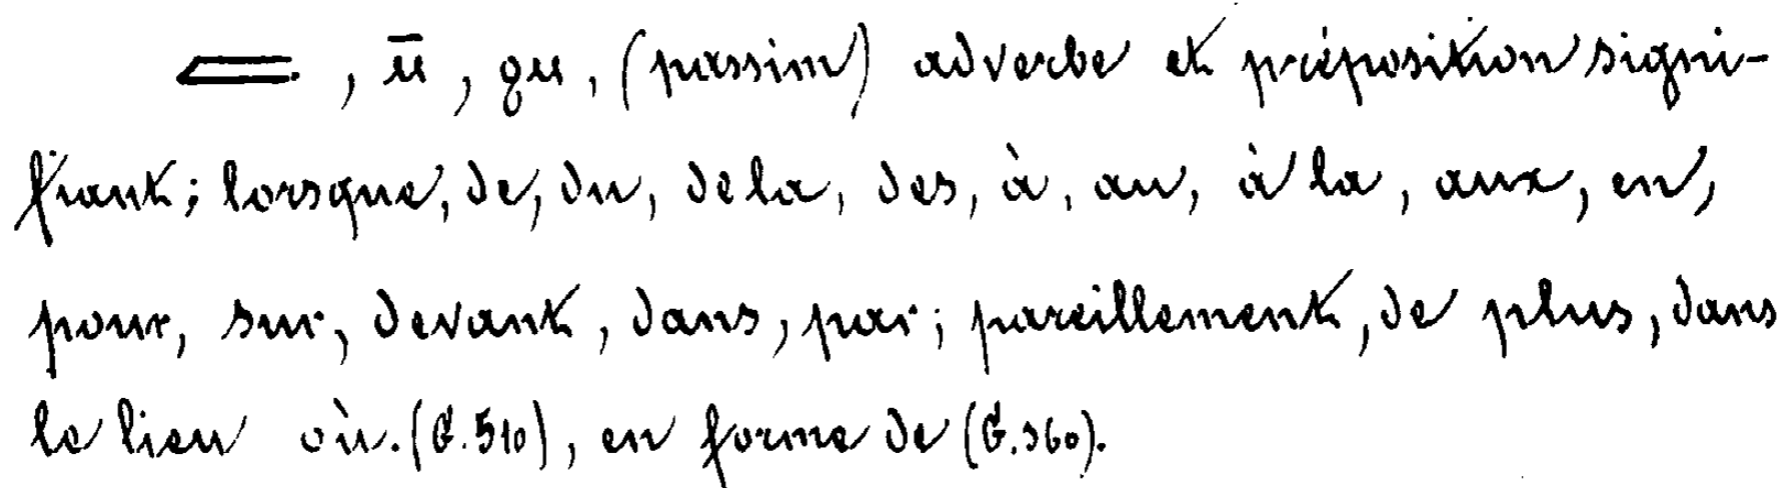 𓐝, ū, qu, (passim) adverbe et préposition signi-
fiant; lorsque, de, du, de la, des, à, au, à la, aux, en,
pour, sur, devant, dans, par; pareillement, de plus, dans
le lieu où. (G. 510), en forme de (G. 360).